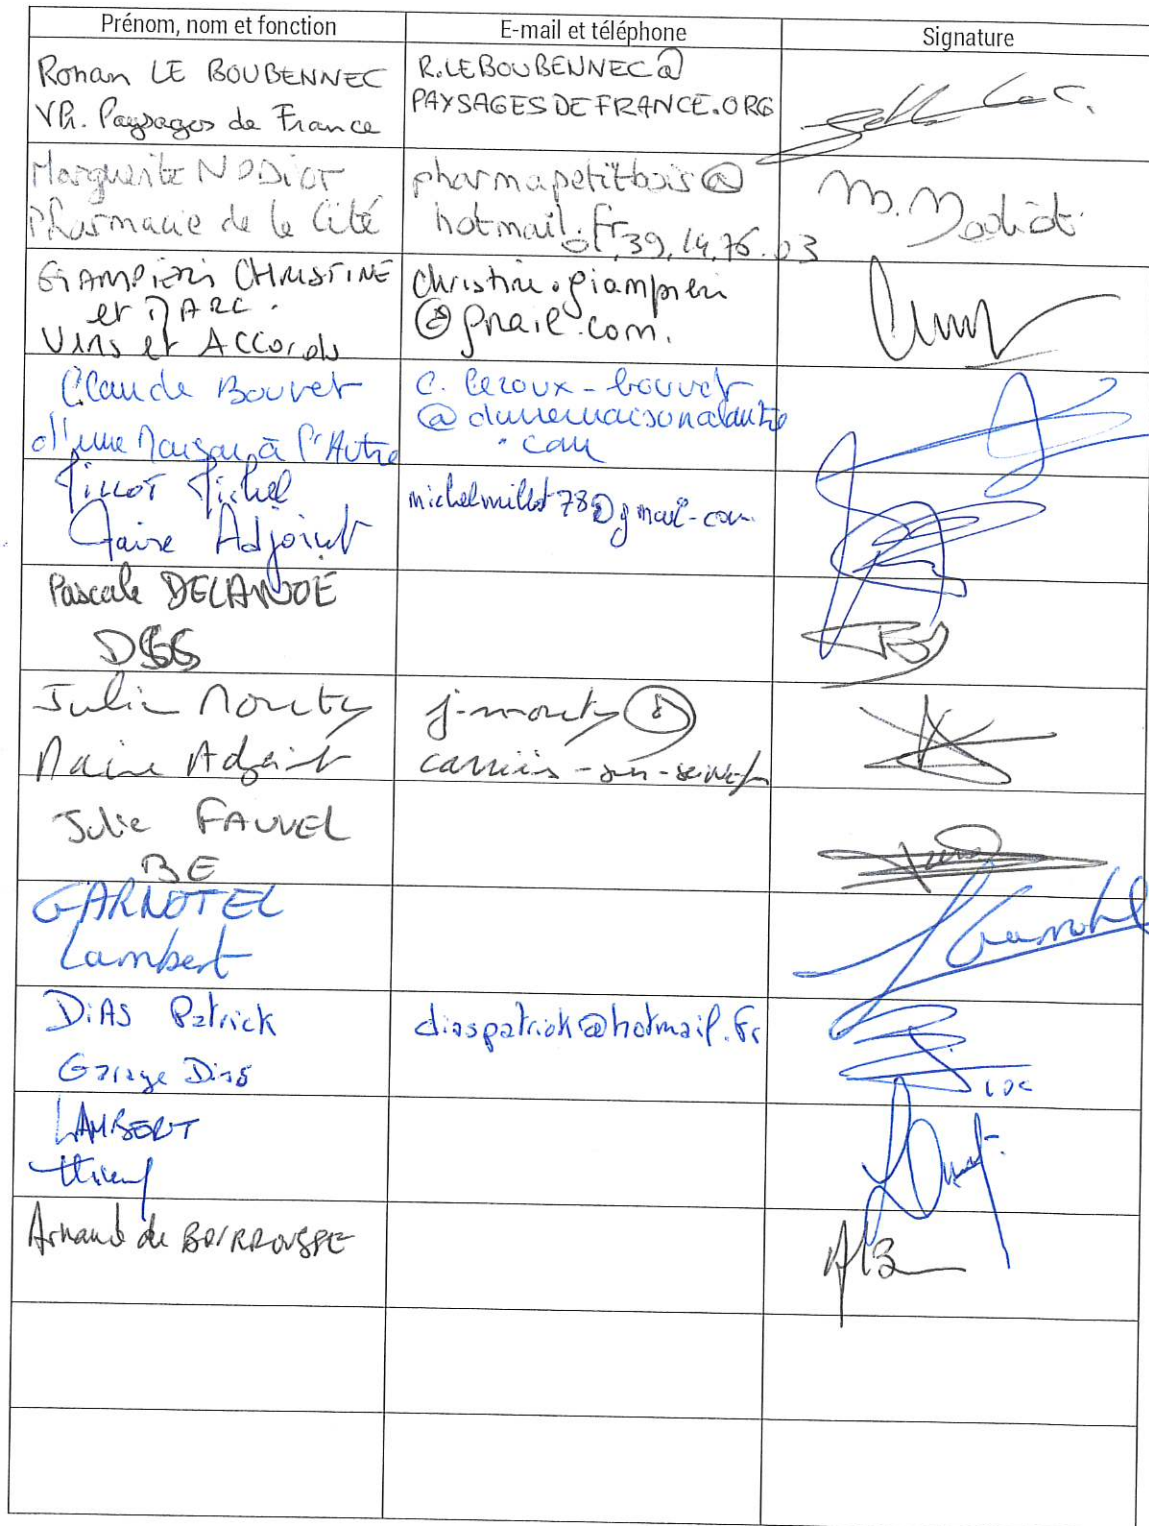 Prénom, nom et fonction
E-mail et téléphone
Signature
Ronan LE BOUBENNEC
VPr. Paysages de France
R.LEBOUBENNEC@
PAYSAGESDEFRANCE.ORG
Marguerite NODIOT
Pharmacie de la Cité
pharmapetitbois@
hotmail.fr
01,39,14,76.03
M. Nodiot
GIAMPIERI CHRISTINE
et MARC.
Vins et Accords
christine.giampieri
@gmail.com.
Claude Bouvet
d'une Maison à l'Autre
C. leroux-bouvet
@dunemaisonalautre
.com
Millot Michel
Maire Adjoint
michelmillot78@gmail.com
Pascale DELANOË
DGS
Julien Mouty
Maire Adjoint
j-mouty@
carrieres-sur-seine.fr
Julie FAUVEL
BE
GARNOTEL
Lambert
DIAS Patrick
Garage Dias
diaspatrick@hotmail.fr
LAMBERT
Thierry
Arnaud de